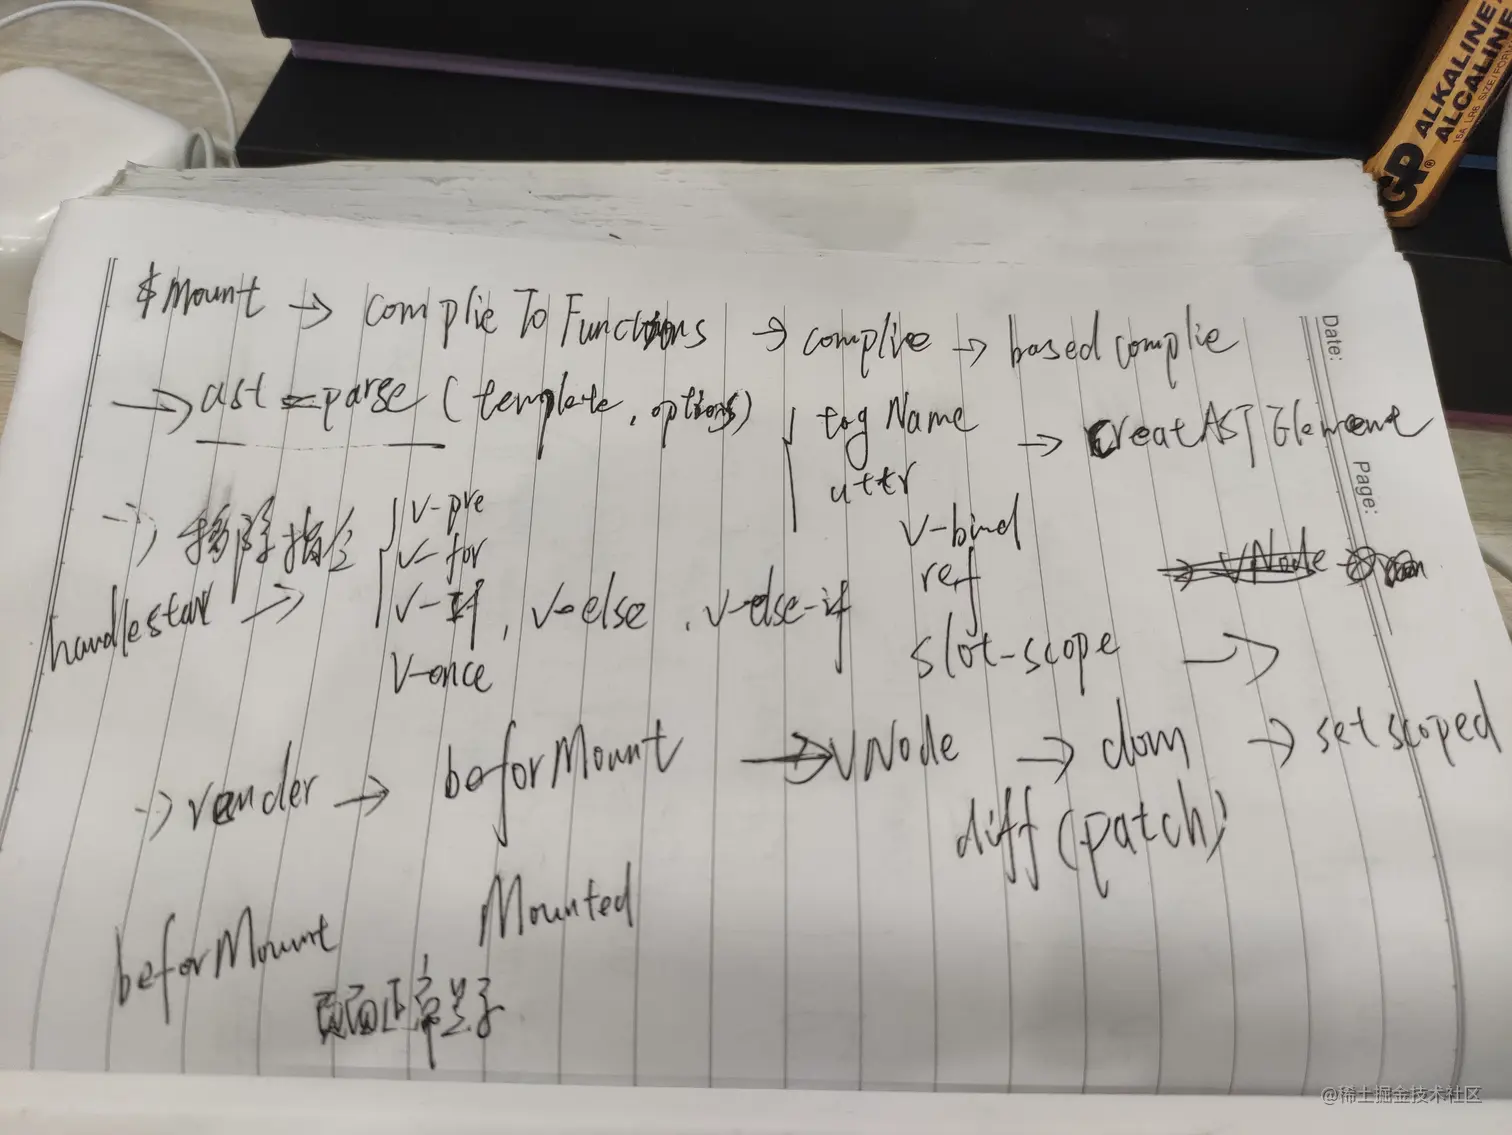 $Mount → complie To Functions → complie → based complie
→ ast = parse (template, options) { tag Name → creatAST Element
attr
→ 移除指令 { v-pre
v-for
v-bind
ref
handlestart → v-if, v-else, v-else-if
slot-scope →
v-once
→ render → beforMount → VNode → dom → set scoped
diff (patch)
beforMount Mounted
页面正常显示
Date:
Page:
GP ALKALINE
ALCALINE
@稀土掘金技术社区